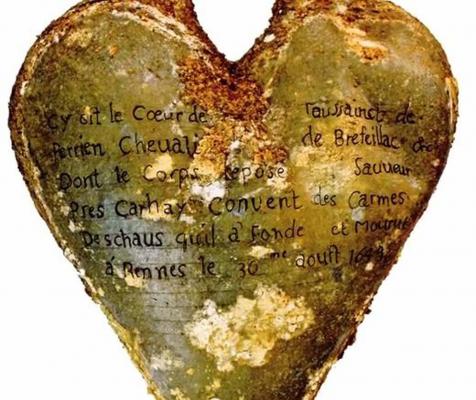 Cy Git le Cœur de Toussainct de
Perrien Chevali de Brefeillac
Dont le Corps Repose Sauveur
Pres Carhay Convent des Carmes
Deschaus quil à Fondé et Mourut
à Rennes le 30me aoust